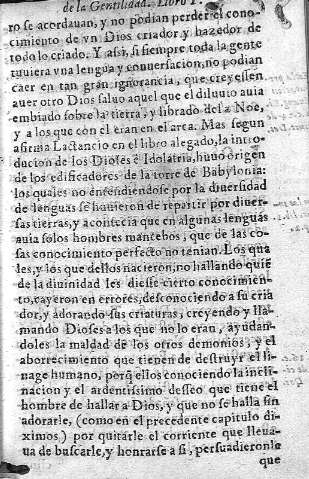 de la Gentilidad. Libro I.
ro se acordauan, y no podian perder el cono-
cimiento de vn Dios criador y hazedor de
todo lo criado. Y assi, si siempre toda la gente
tuuiera vna lengua y conuersacion, no podian
caer en tan gran ignorancia, que creyessen
auer otro Dios saluo aquel que el diluuio auia
embiado sobre la tierra, y librado della a Noe,
y a los que con el eran en el arca. Mas segun
afirma Lactancio en el libro alegado, la intro-
ducion de los Dioses è Idolatria, huuo origen
de los edificadores de la torre de Babylonia:
los quales no entendiendose por la diuersidad
de lenguas se huuieron de repartir por diuer-
sas tierras, y acontecia que en algunas lenguas
auia solos hombres mancebos, que de las co-
sas conocimiento perfecto no tenian. Los qua
les, y los que dellos nacieron, no hallando quiẽ
de la diuinidad les diesse cierto conocimien-
to, cayeron en errores, desconociendo a su cria
dor, y adorando sus criaturas, creyendo y lla-
mando Dioses a los que no lo eran, ayudan-
doles la maldad de los otros demonios, y el
aborrecimiento que tienen de destruyr el li-
nage humano, porq̃ ellos conociendo la incli-
nacion y el ardentissimo desseo que tiene el
hombre de hallar a Dios, y que no se halla sin
adorarle, (como en el precedente capitulo di-
ximos) por quitarle el corriente que lleua-
ua de buscarle, y honrarse a si, persuadieronle
que